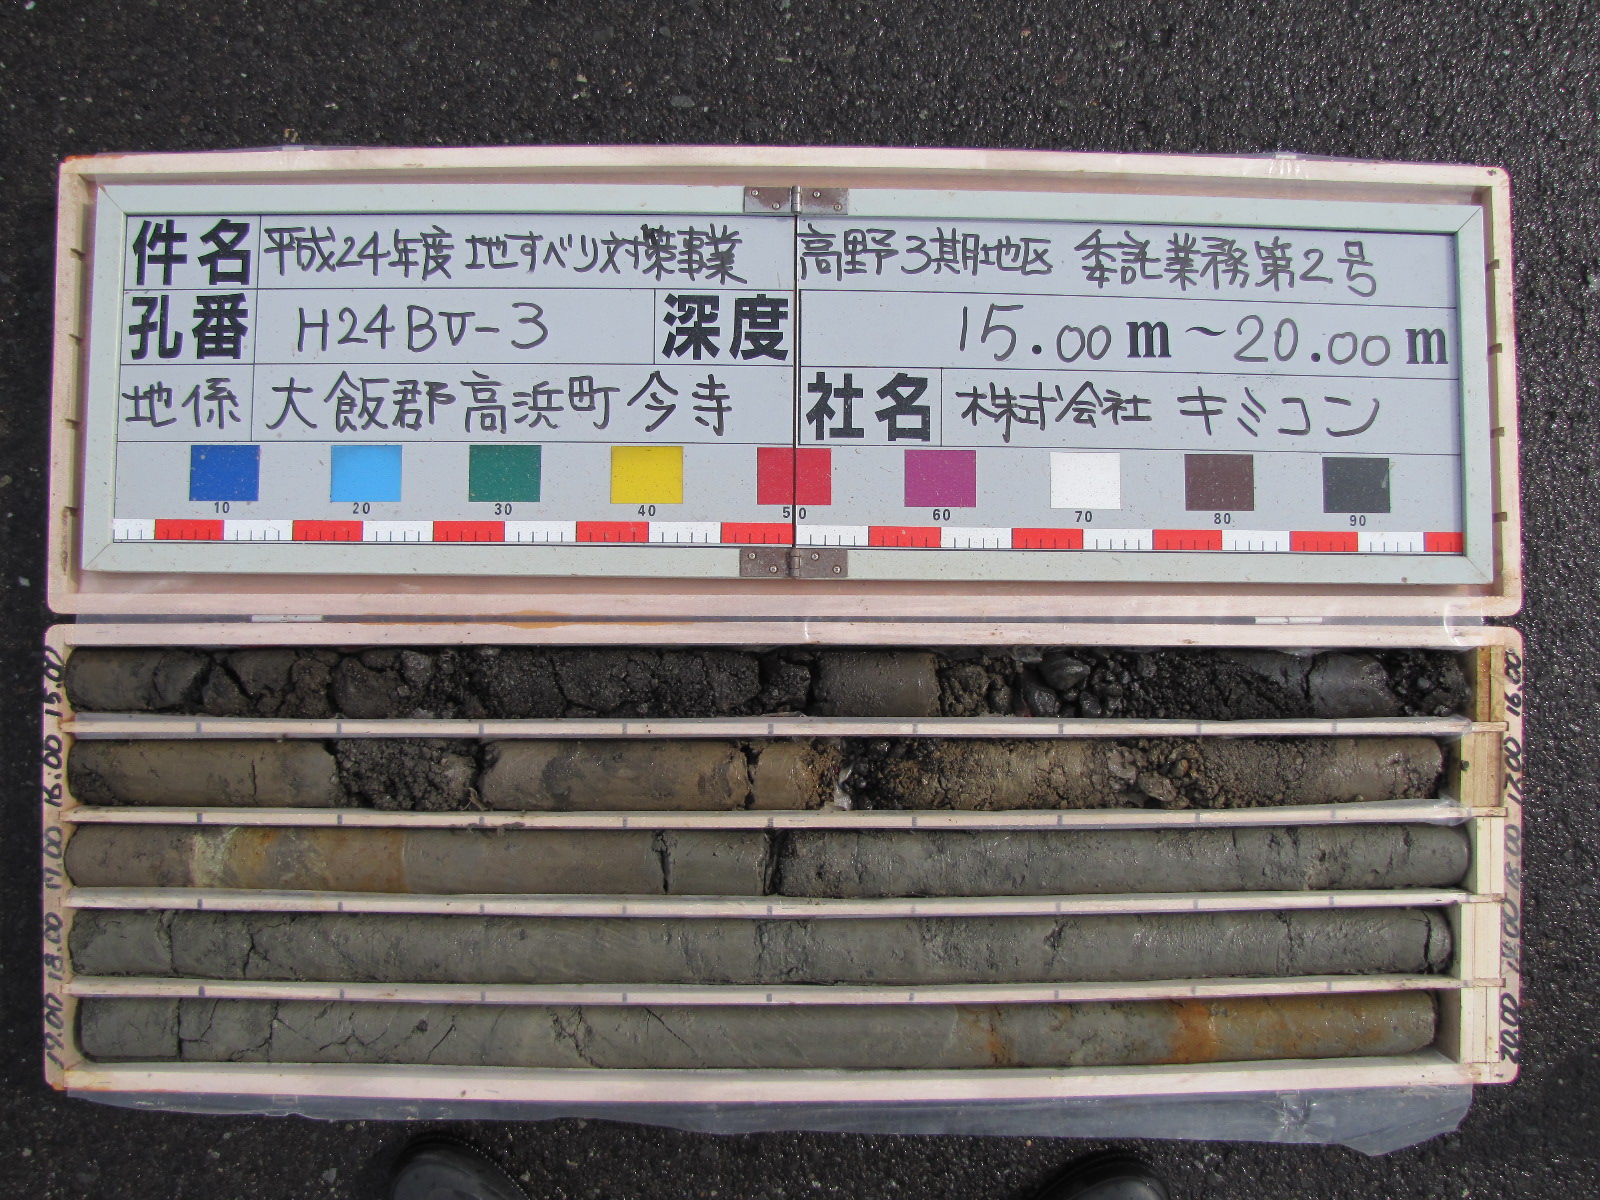 件名 平成24年度 地すべり対策事業 高野3期地区 委託業務第2号
孔番 H24BV-3 深度 15.00m~20.00m
地係 大飯郡高浜町今寺 社名 株式会社 キミコン
10 20 30 40 50 60 70 80 90
15.00 16.00
16.00 17.00
17.00 18.00
18.00 19.00
19.00 20.00